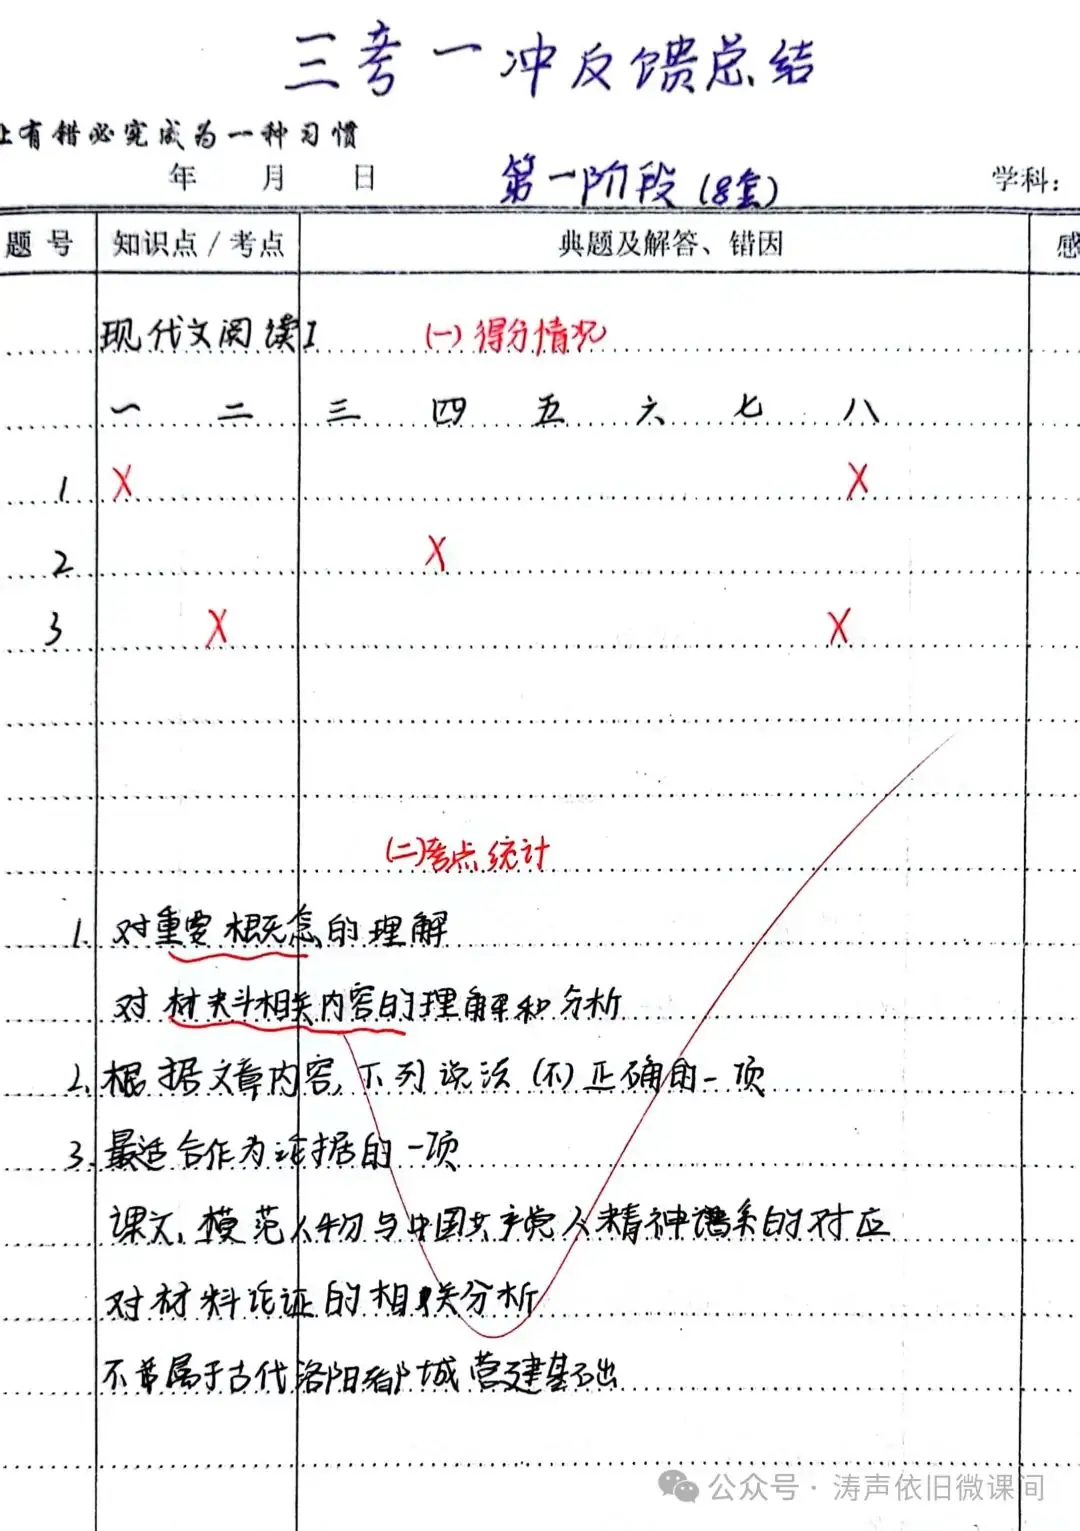 三考一冲反馈总结
让有错必究成为一种习惯
年 月 日 第一阶段(8套) 学科:
题号 知识点/考点 典题及解答、错因 感
现代文阅读I (一)得分情况
一 二 三 四 五 六 七 八
1 X X
2 X
3 X X
(二)考点统计
1. 对重要概念的理解
对材料相关内容的理解和分析
2. 根据文章内容,下列说法(不)正确的一项
3. 最适合作为论据的一项
课文,模范人物与中国共产党人精神谱系的对应
对材料论证的相关分析
不属于古代洛阳都城营建基础
公众号·涛声依旧微课间